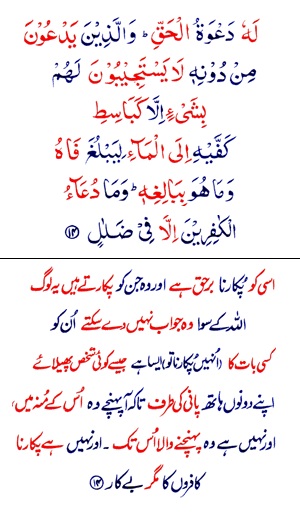 لَهٗ دَعْوَةُ الْحَقِّ ؕ وَالَّذِيْنَ يَدْعُوْنَ
مِنْ دُوْنِهٖ لَا يَسْتَجِيْبُوْنَ لَهُمْ
بِشَیْءٍ اِلَّا كَبَاسِطِ
كَفَّيْهِ اِلَى الْمَآءِ لِيَبْلُغَ فَاهُ
وَمَا هُوَ بِبَالِغِهٖ ؕ وَمَا دُعَآءُ
الْكٰفِرِيْنَ اِلَّا فِیْ ضَلٰلٍ ﴿۱۴﴾
اسی کو پُکارنا برحق ہے اور وہ جن کو پکارتے ہیں یہ لوگ
اللہ کے سوا وہ جواب نہیں دے سکتے اُن کو
کسی بات کا (اُنہیں پُکارنا تو) ایسا ہے جیسے کوئی شخص پھیلائے
اپنے دونوں ہاتھ پانی کی طرف تاکہ آپہنچے وہ اُس کے مُنہ میں،
اور نہیں ہے وہ پہنچنے والا اُس تک ۔ اور نہیں ہے پکارنا
کافروں کا مگر بے کار ﴿۱۴﴾